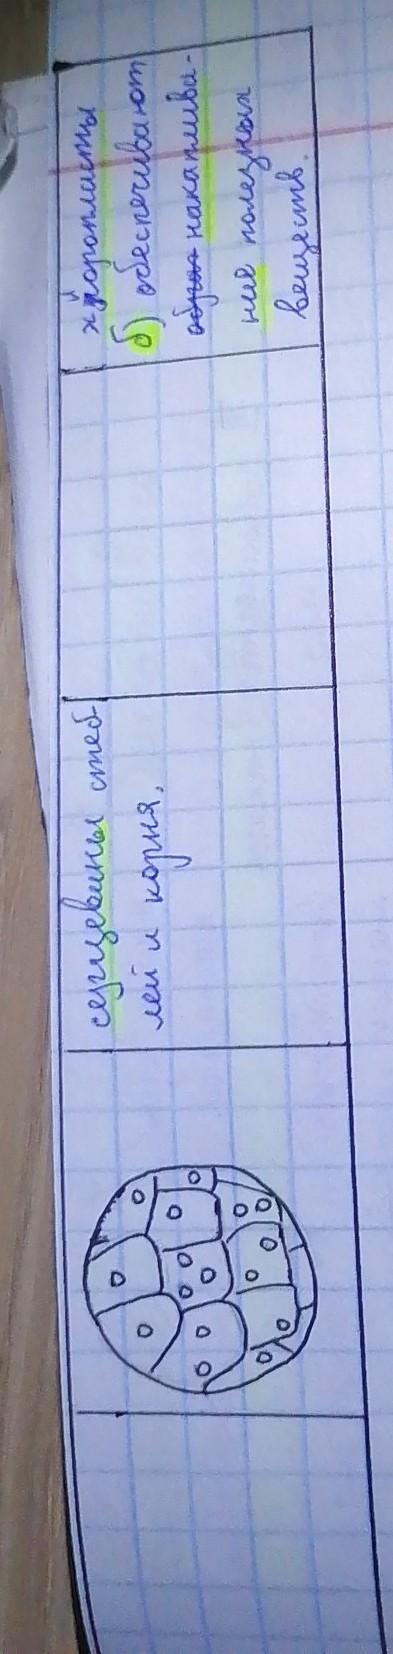 сердцевины стеб
лей и корня,
хлоропласты
б) обеспечивают
накаплива-
ние полезных
веществ.